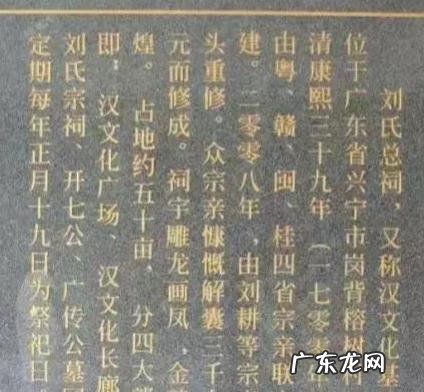 刘氏总祠，又称汉文化基
位于广东省兴宁市岗背榕树
清康熙三十九年（一七零零
由粤、赣、闽、桂四省宗亲联
建。二零零八年，由刘耕等宗
头重修。众宗亲慷慨解囊三千
元而修成。祠宇雕龙画凤，金
煌。占地约五十亩，分四大
即：汉文化广场、汉文化长廊
刘氏宗祠、开七公、广传公墓
定期每年正月十九日为祭祀日
广东龙网